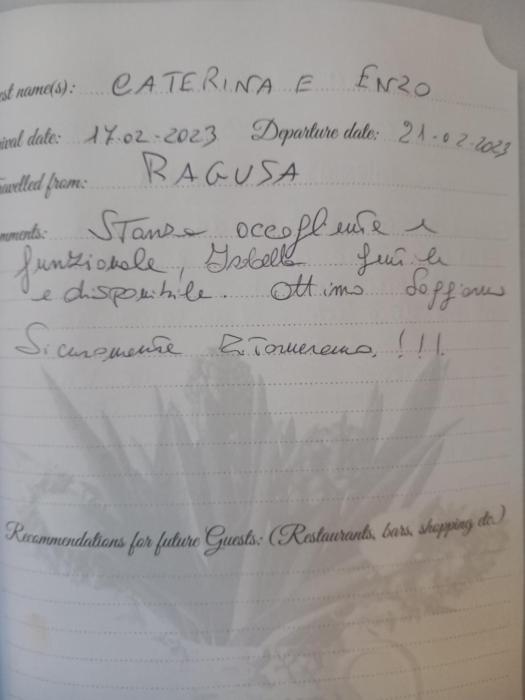 est name(s): CATERINA E ENZO
ival date: 17.02-2023 Departure date: 21-02-2023
avelled from: RAGUSA
mments: Stanza accogliente e
funzionale, Isabella gentile
e disponibile. Ottimo soggiorno
Sicuramente Ritorneremo, !!!
Recommendations for future Guests: (Restaurants, bars, shopping etc.)